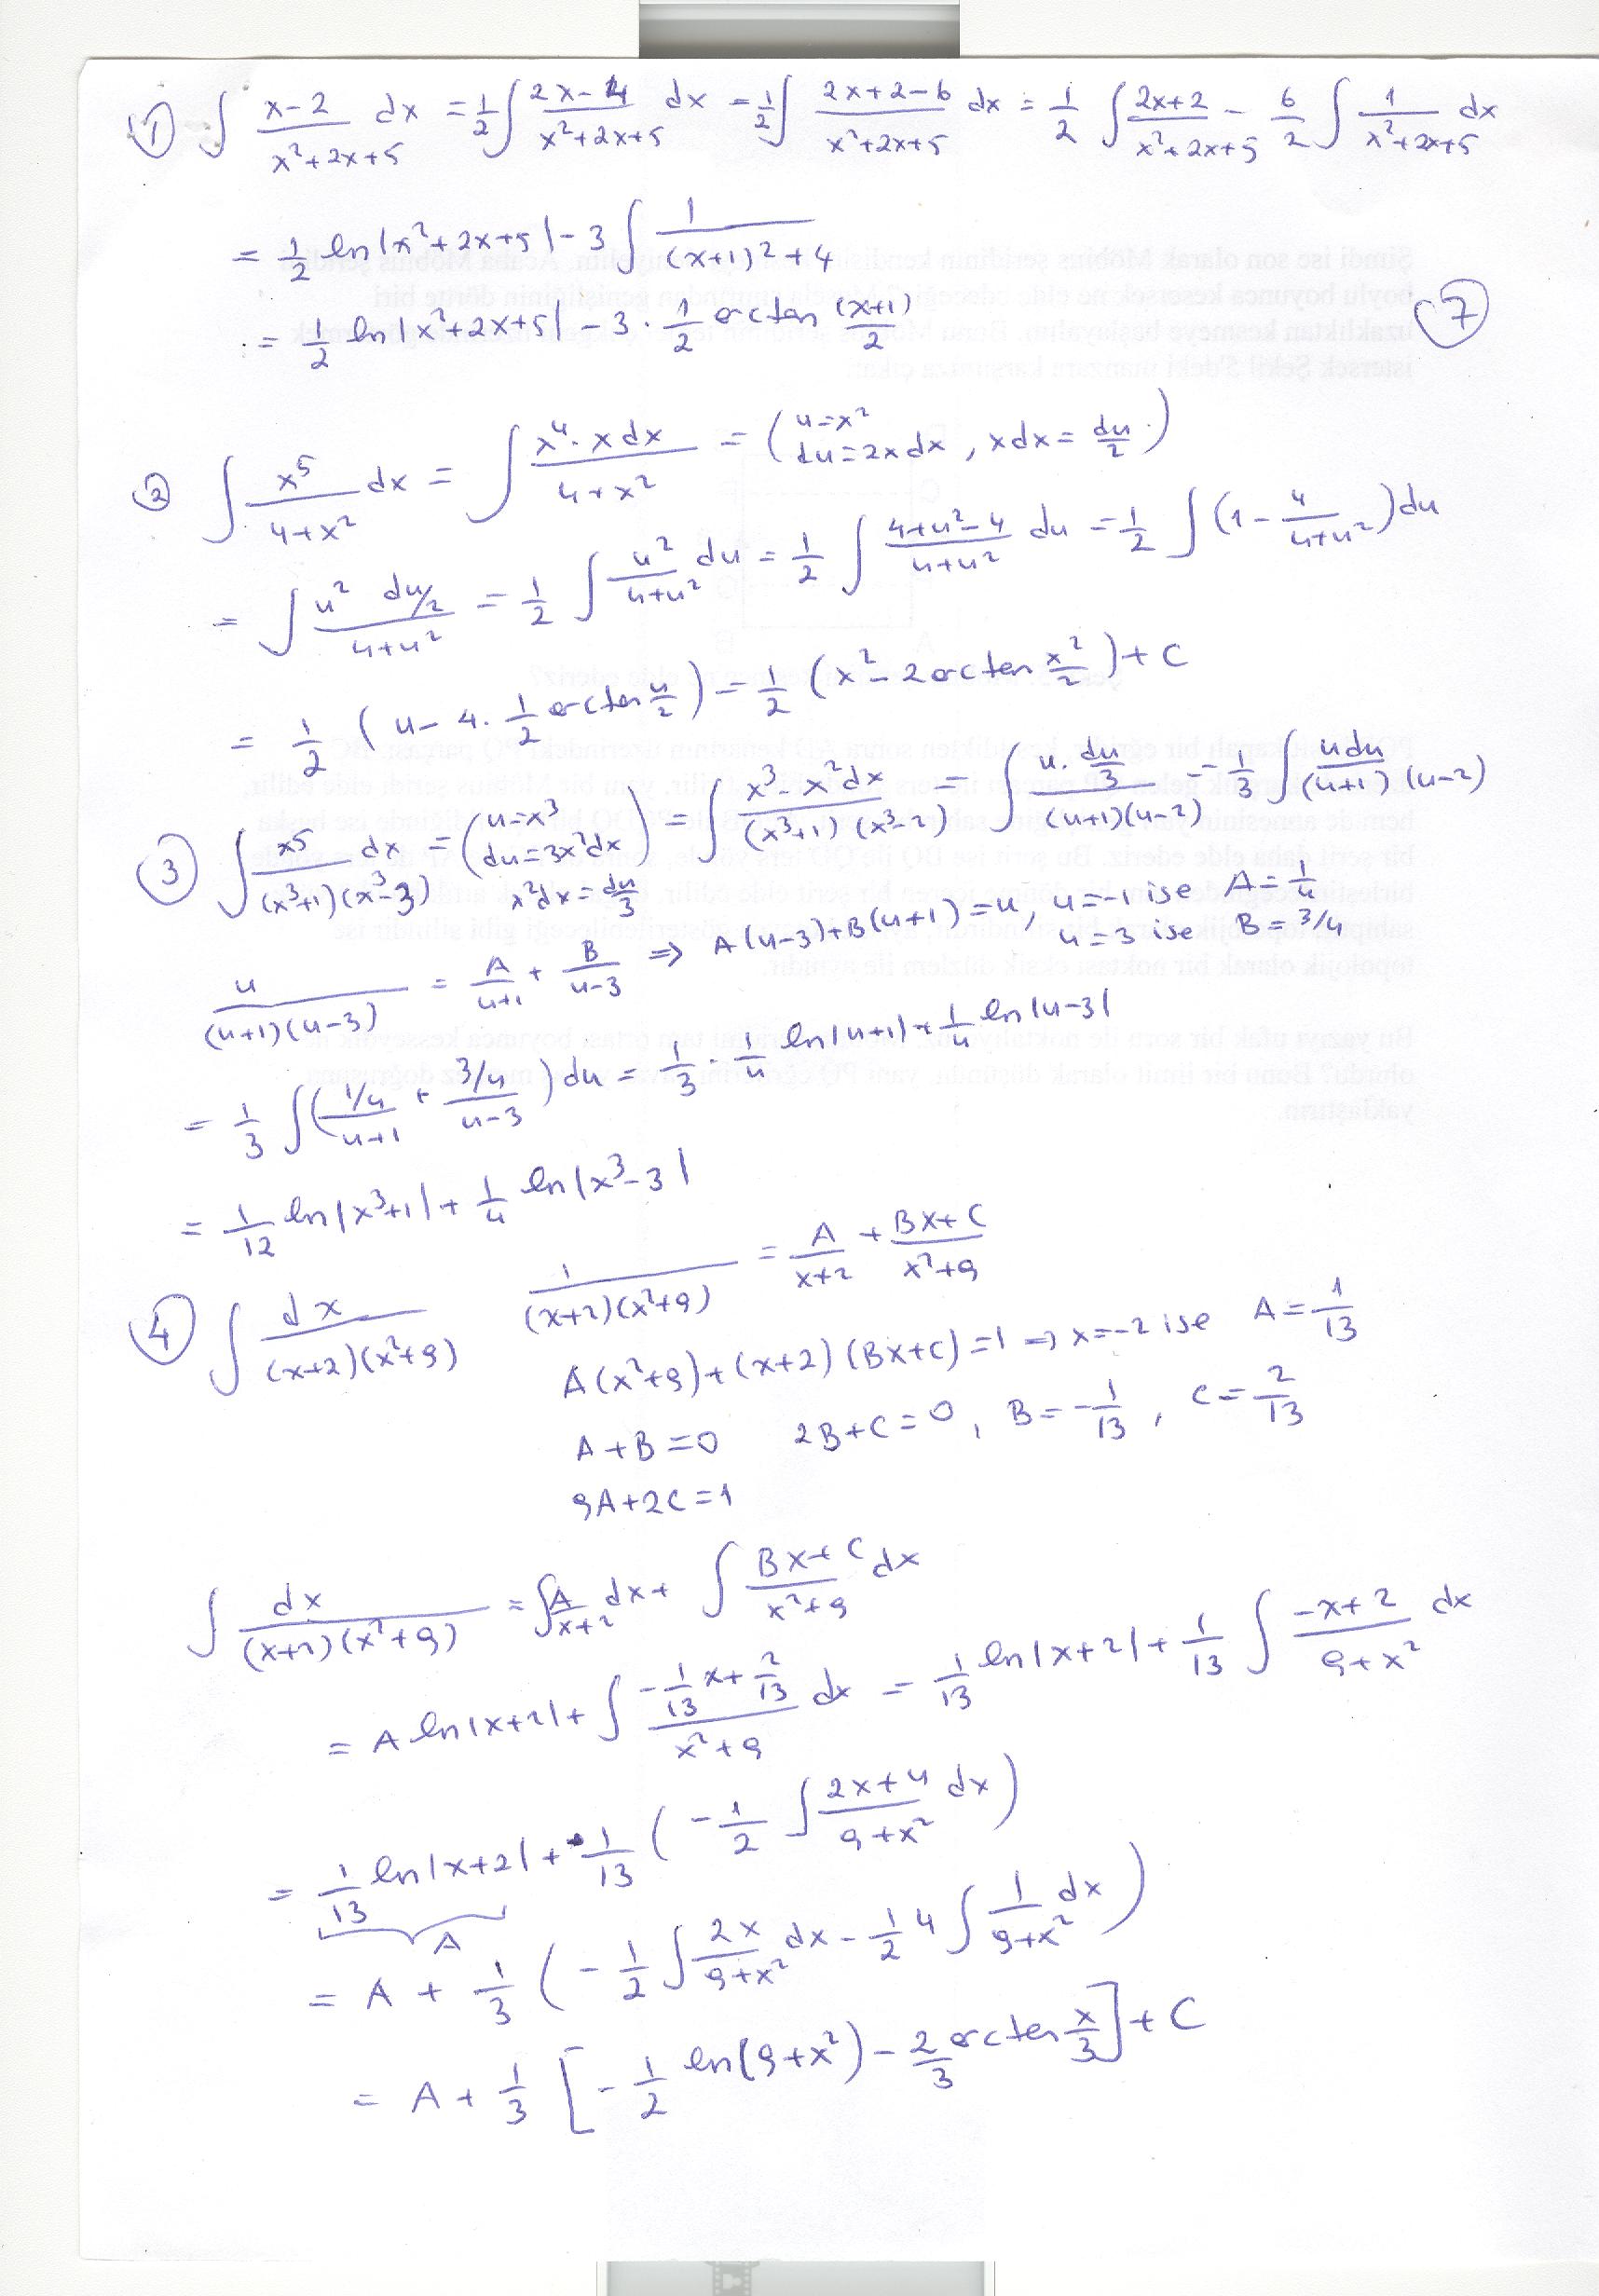 ① ∫ (x-2)/(x²+2x+5) dx = 1/2 ∫ (2x-4)/(x²+2x+5) dx = 1/2 ∫ (2x+2-6)/(x²+2x+5) dx = 1/2 ∫ (2x+2)/(x²+2x+5) - 6/2 ∫ 1/(x²+2x+5) dx
= 1/2 ln|x²+2x+5| - 3 ∫ 1/((x+1)²+4)
= 1/2 ln|x²+2x+5| - 3 · 1/2 arctan (x+1)/2
⑦
② ∫ x⁵/(4+x²) dx = ∫ (x⁴·x dx)/(4+x²) = (u=x² du=2xdx, xdx = du/2)
= ∫ (u² du/2)/(4+u²) = 1/2 ∫ u²/(4+u²) du = 1/2 ∫ (4+u²-4)/(4+u²) du = 1/2 ∫ (1 - 4/(4+u²)) du
= 1/2 (u - 4 · 1/2 arctan u/2) = 1/2 (x² - 2 arctan x²/2) + C
③ ∫ x⁵/((x³+1)(x³-3)) dx = (u=x³ du=3x²dx) = ∫ (x³·x²dx)/((x³+1)(x³-2)) = ∫ (u·du/3)/((u+1)(u-2)) = 1/3 ∫ udu/((u+1)(u-2))
x²dx = du/3
u/((u+1)(u-3)) = A/(u+1) + B/(u-3) ⇒ A(u-3)+B(u+1)=u, u=-1 ise A=1/4
u=3 ise B=3/4
= 1/3 ∫ ((1/4)/(u+1) + (3/4)/(u-3)) du = 1/3 · 1/4 ln|u+1| + 1/4 ln|u-3|
= 1/12 ln|x³+1| + 1/4 ln|x³-3|
④ ∫ dx/((x+2)(x²+9)) 1/((x+2)(x²+9)) = A/(x+2) + (Bx+C)/(x²+9)
A(x²+9)+(x+2)(Bx+C)=1 ⇒ x=-2 ise A=1/13
A+B=0 2B+C=0, B=-1/13, C=2/13
9A+2C=1
∫ dx/((x+2)(x²+9)) = ∫ A/(x+2) dx + ∫ (Bx+C)/(x²+9) dx
= A ln|x+2| + ∫ (-1/13 x + 2/13)/(x²+9) dx = 1/13 ln|x+2| + 1/13 ∫ (-x+2)/(9+x²) dx
= 1/13 ln|x+2| + 1/13 (-1/2 ∫ (2x+4)/(9+x²) dx)
A
= A + 1/3 (-1/2 ∫ 2x/(9+x²) dx - 1/2 4 ∫ 1/(9+x²) dx)
= A + 1/3 [-1/2 ln(9+x²) - 2/3 arctan x/3] + C